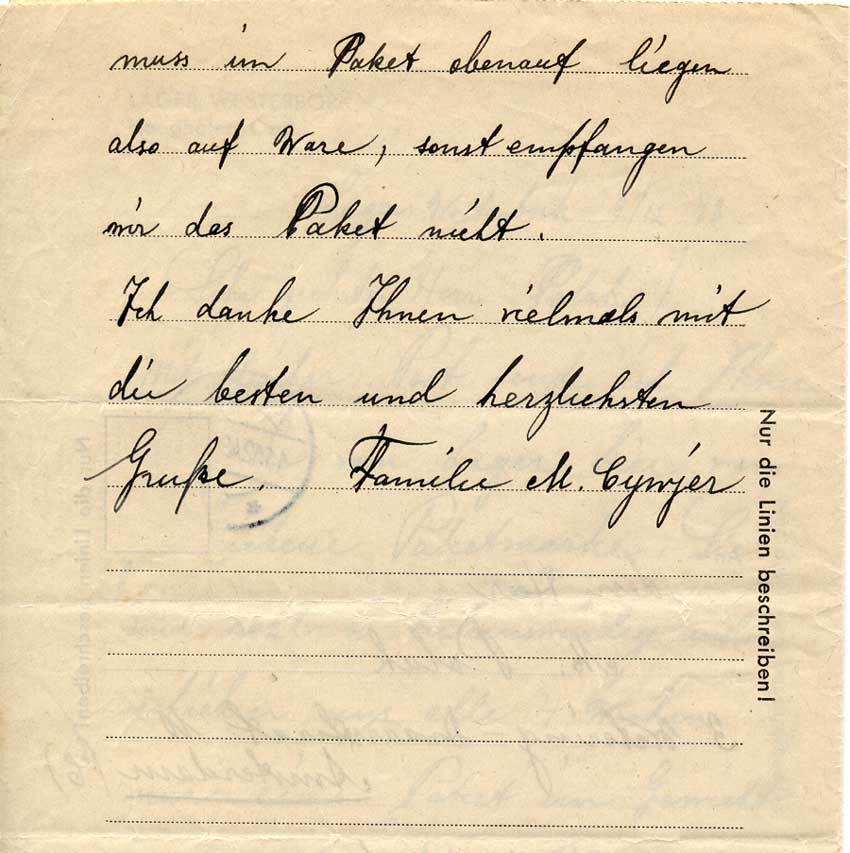 muss im Paket obenauf liegen
also auf Ware, sonst empfangen
wir das Paket nicht.
Ich danke Ihnen vielmals mit
die besten und herzlichsten
Gruße. Familie M. Cywjer
Nur die Linien beschreiben!